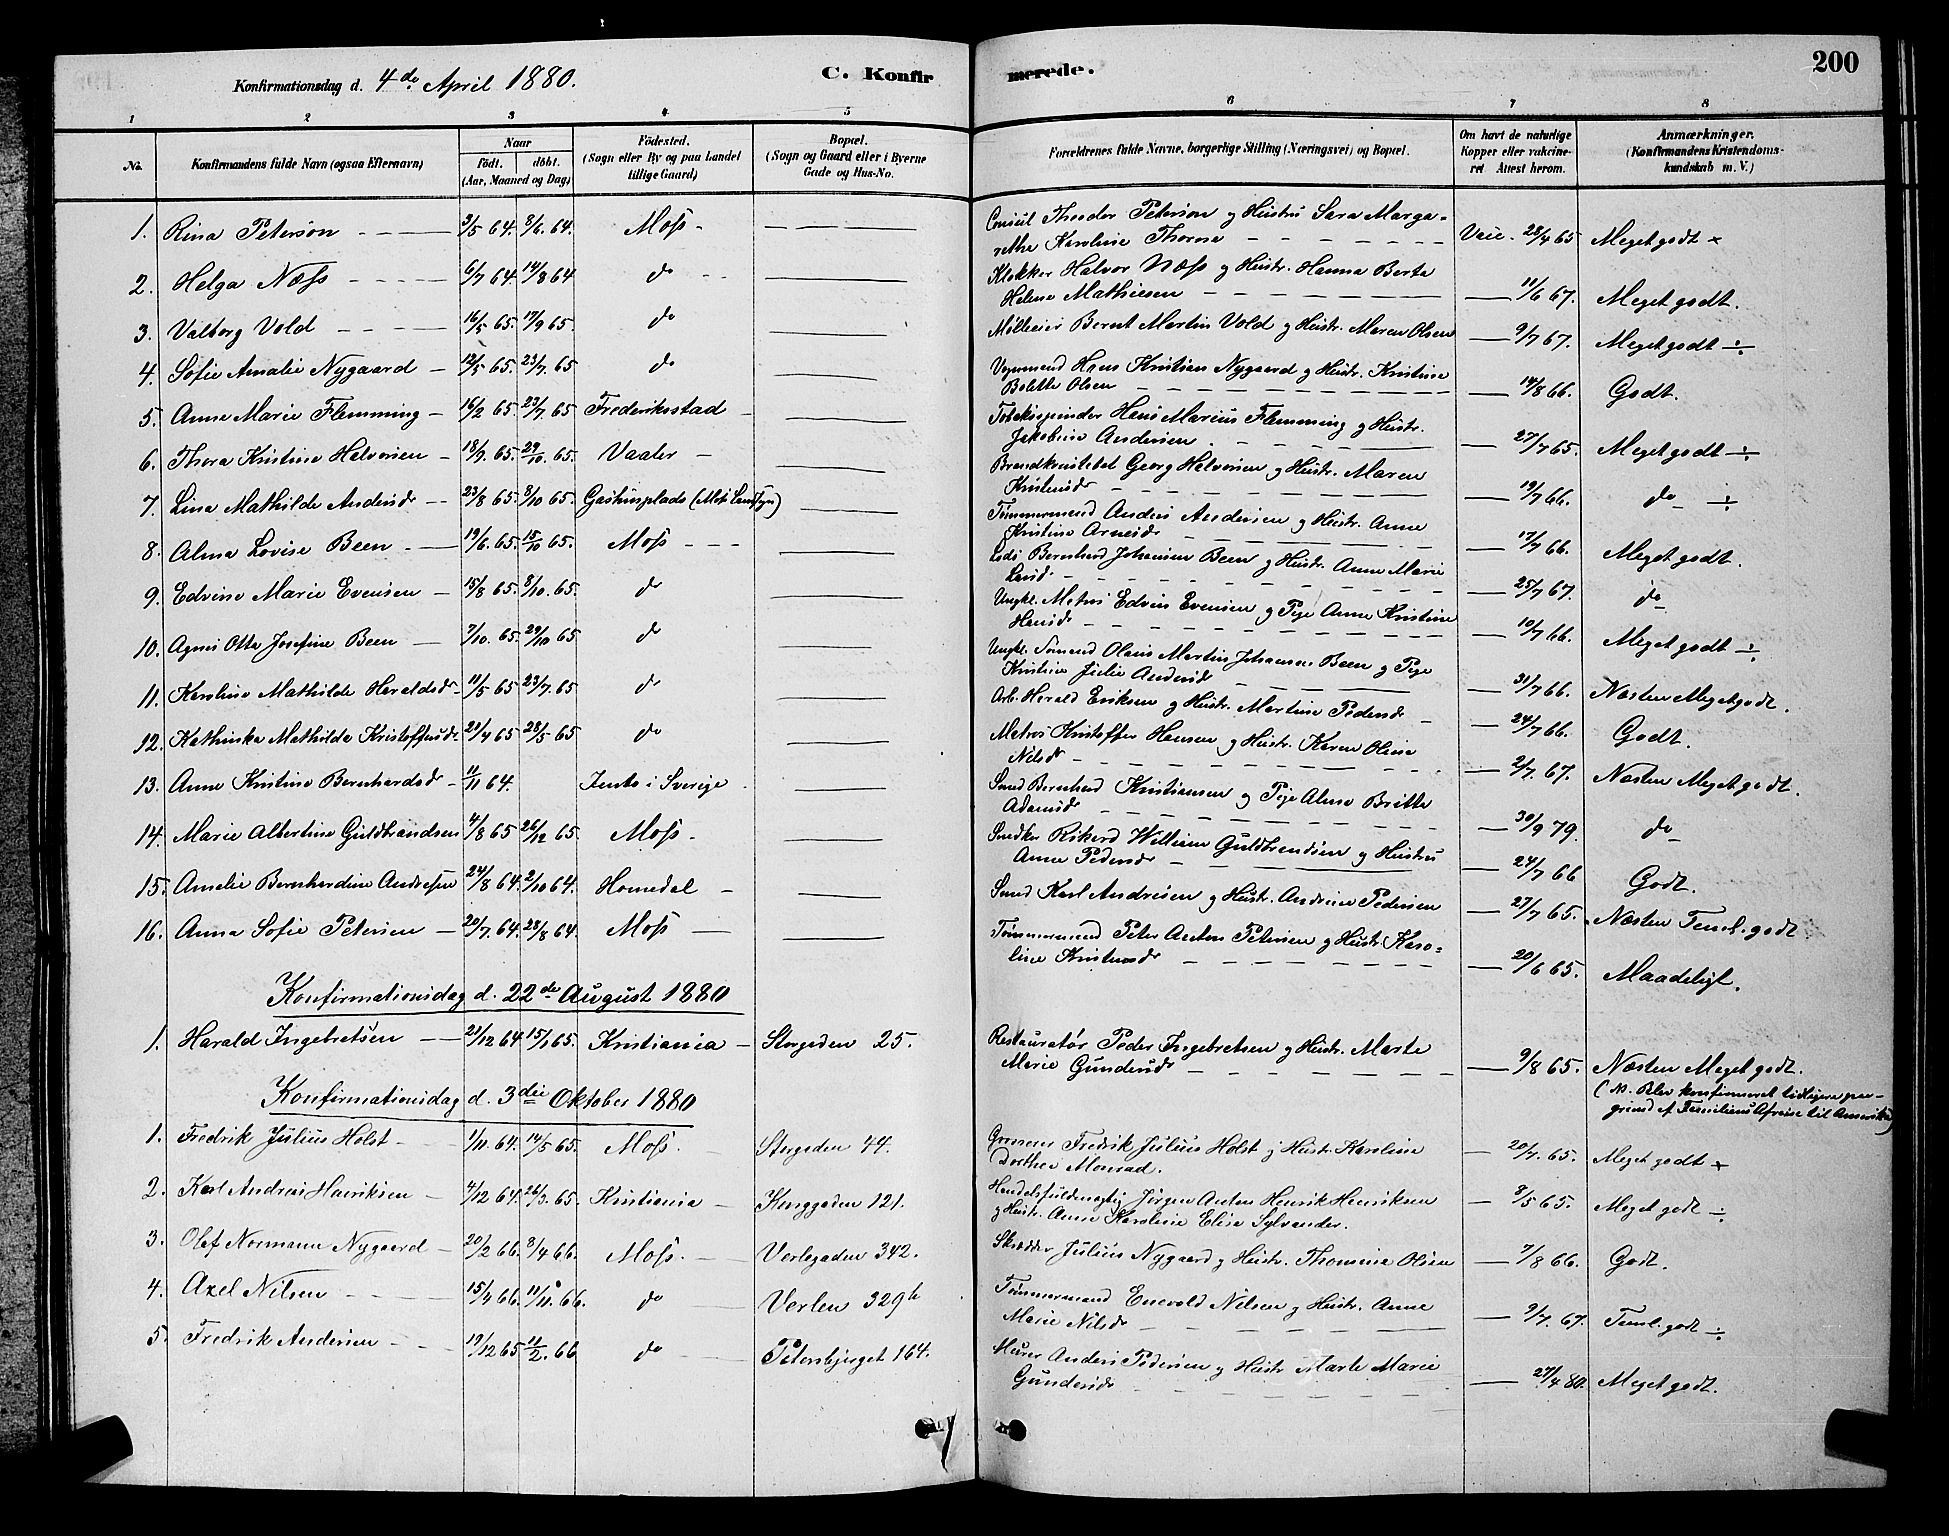 200
Konfirmationsdag d. 4de April 1880.
C. Konfir
merede.
1 2 3 4 5 6 7 8
No.
Konfirmandens fulde Navn (ogsaa Efternavn)
Naar
födt. döbt.
(Aar, Maaned og Dag)
Födested.
(Sogn eller By og paa Landet
tillige Gaard)
Bopæl.
(Sogn og Gaard eller i Byerne
Gade og Hus-No.
Forældrenes fulde Navne, borgerlige Stilling (Næringsvei) og Bopæl.
Om havt de naturlige
Kopper eller vakcine-
ret Attest herom.
Anmærkninger.
(Konfirmandens Kristendoms-
kundskab m. V.)
1. Rina Peterson 3/5 64. 8/6. 64. Moss Consul Theodor Peterson og Hustru Sara Marga-
rethe Karoline Thorne Vacc. 28/4 65 Meget godt ×
2. Helga Næss 6/7 64. 14/8 64 do Klokker Halvor Næss og Hustr. Hanna Berte
Helene Mathiesen — 11/6 67. Meget godt.
3. Valborg Vold 16/5 65. 17/9 65 do Mølleeier Bernt Martin Vold og Hustr. Maren Olsen — 9/7 67. Meget godt ÷
4. Sofie Amalie Nygaard 12/5 65. 23/7. 65 do Vognmand Hans Kristian Nygaard og Hustr. Kristine
Bolette Olsen — 14/8 66. Godt.
5. Anne Marie Flemming 16/2 65. 23/7 65 Frederiksstad Tobakspinder Hans Marius Flemming og Hustr.
Jakobine Andersen — 27/7 65. Meget godt ÷
6. Thora Kristine Halvorsen 18/9. 65. 29/10. 65. Vaaler Brandkonstabel Georg Halvorsen og Hustr. Maren
Kristensdr — 19/7 66. do ÷
7. Lina Mathilde Andersdr 23/8 65. 8/10 65. (Moss Landsogn) Tømmermand Anders Andersen og Hustr. Anne
Kristine Arnesdr — 17/7 66. Meget godt.
8. Alma Lovise Been 19/6. 65. 15/10 65. Moss Lods Bernhard Johansen Been og Hustr. Anne Marie
Larsd — 25/7 67. do
9. Edvine Marie Evensen 15/8 65. 8/10. 65. do Ungkl. Matros Edvin Evensen og Pige Anne Kristine
Hansdr — 10/7 66. Meget godt ÷
10. Agnes Otta Josefine Been 7/10. 65. 29/10 65 do Ungkl. Sømand Olaus Martin Johansen Been og Pige
Kristine Julie Andersdr — 31/7 66. Næsten Meget godt.
11. Karoline Mathilde Haraldsdr 11/5 65 23/7. 65 do Arb. Harald Eriksen og Hustr. Martine Pedersdr — 24/7 66. Godt.
12. Kathinka Mathilde Kristoffersdr. 22/4 65 28/5 65 do Matros Kristoffer Hansen og Hustr. Karen Oline
Nilsdr — 2/7. 67. Næsten Meget godt.
13. Anne Kristine Bernhardsdr 11/11 64. i Sverige Smed Bernhard Kristiansen og Pige Alma Britta
Adamsdr — 30/9 79. do
14. Marie Albertine Guldbrandsen 4/8 65 26/12 65. Moss. Snedker Rikard William Guldbrandsen og Hustru
Anne Pedersdr — 24/7 66 Godt.
15. Amalie Bernhardine Andresen 24/8 64. 2/10 64. Homedal Smed Karl Andresen og Hustr. Andrine Pedersen — 27/7 65. Næsten Teml. godt
16. Anna Sofie Petersen 20/7. 64. 28/8 64. Moss Tømmermand Peter Anton Petersen og Hustr. Karo-
line Kristensdr — 20/6 65. Maadeligt.
Konfirmationsdag d. 22de August 1880
1. Harald Ingebretsen 21/12 64. 15/1 65. Kristiania Storgaden 25. Restauratør Peder Ingebretsen og Hustr. Marte
Marie Gundersdr — 9/8 65. Næsten Meget godt.
(N. Blev konfirmeret tidligere paa
grund af Familiens Afreise til Amerika)
Konfirmationsdag d. 3die Oktober 1880
1. Fredrik Julius Holst 1/11 64. 14/5 65. Moss. Storgaden 44. Grosserer Fredrik Julius Holst og Hustr. Karoline
Dorthea Monrad. — 20/7. 65. Meget godt ×
2. Karl Andreas Henriksen 4/12 64. 26/3. 65. Kristiania Konggaden 121. Handelsfuldmægtig Jørgen Anton Henrik Henriksen
og Hustr. Anne Karoline Elise Sylvander. — 8/5 65. Meget godt ÷
3. Olaf Normann Nygaard 20/2 66. 8/4 66. Moss. Verlegaden 342. Skrædder Julius Nygaard og Hustr. Thomine Olsen — 7/8 66. Godt.
4. Axel Nilsen 15/4 66. 11/11. 66. do Verlen 329b Tømmermand Enevold Nilsen og Hustr. Anne
Marie Nilsdr — 9/7. 67. Teml. godt ÷
5. Fredrik Andersen 19/12 65 11/2. 66 do Petersbjerget 164. Murer Anders Pedersen og Hustr Marte Marie
Gundersdr — 27/4 80. Meget godt.